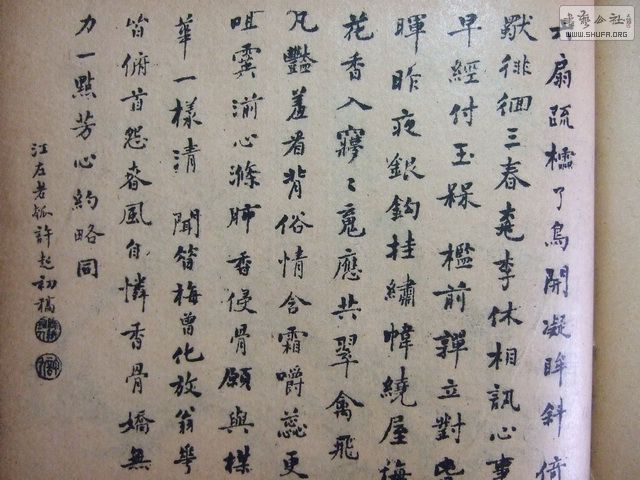 扇疏櫺了鳥開凝眸斜倚
獃徘徊三春堯李休相訊心事
早經付玉槑檻前嚲立對
暉昨夜銀鉤挂繡幃繞屋梅
花香入寱寱䰟應共翠禽飛
凡豔羞看背俗情含霜嚼蕊更
咀霙湔心滌肺香侵骨願與楳
華一樣清 聞笛梅曾化放翁華
笛俯首怨春風自憐香骨嬌無
力一點芳心約略同
江左老狐許起初稿
書藝公社
WWW.SHUFA.ORG